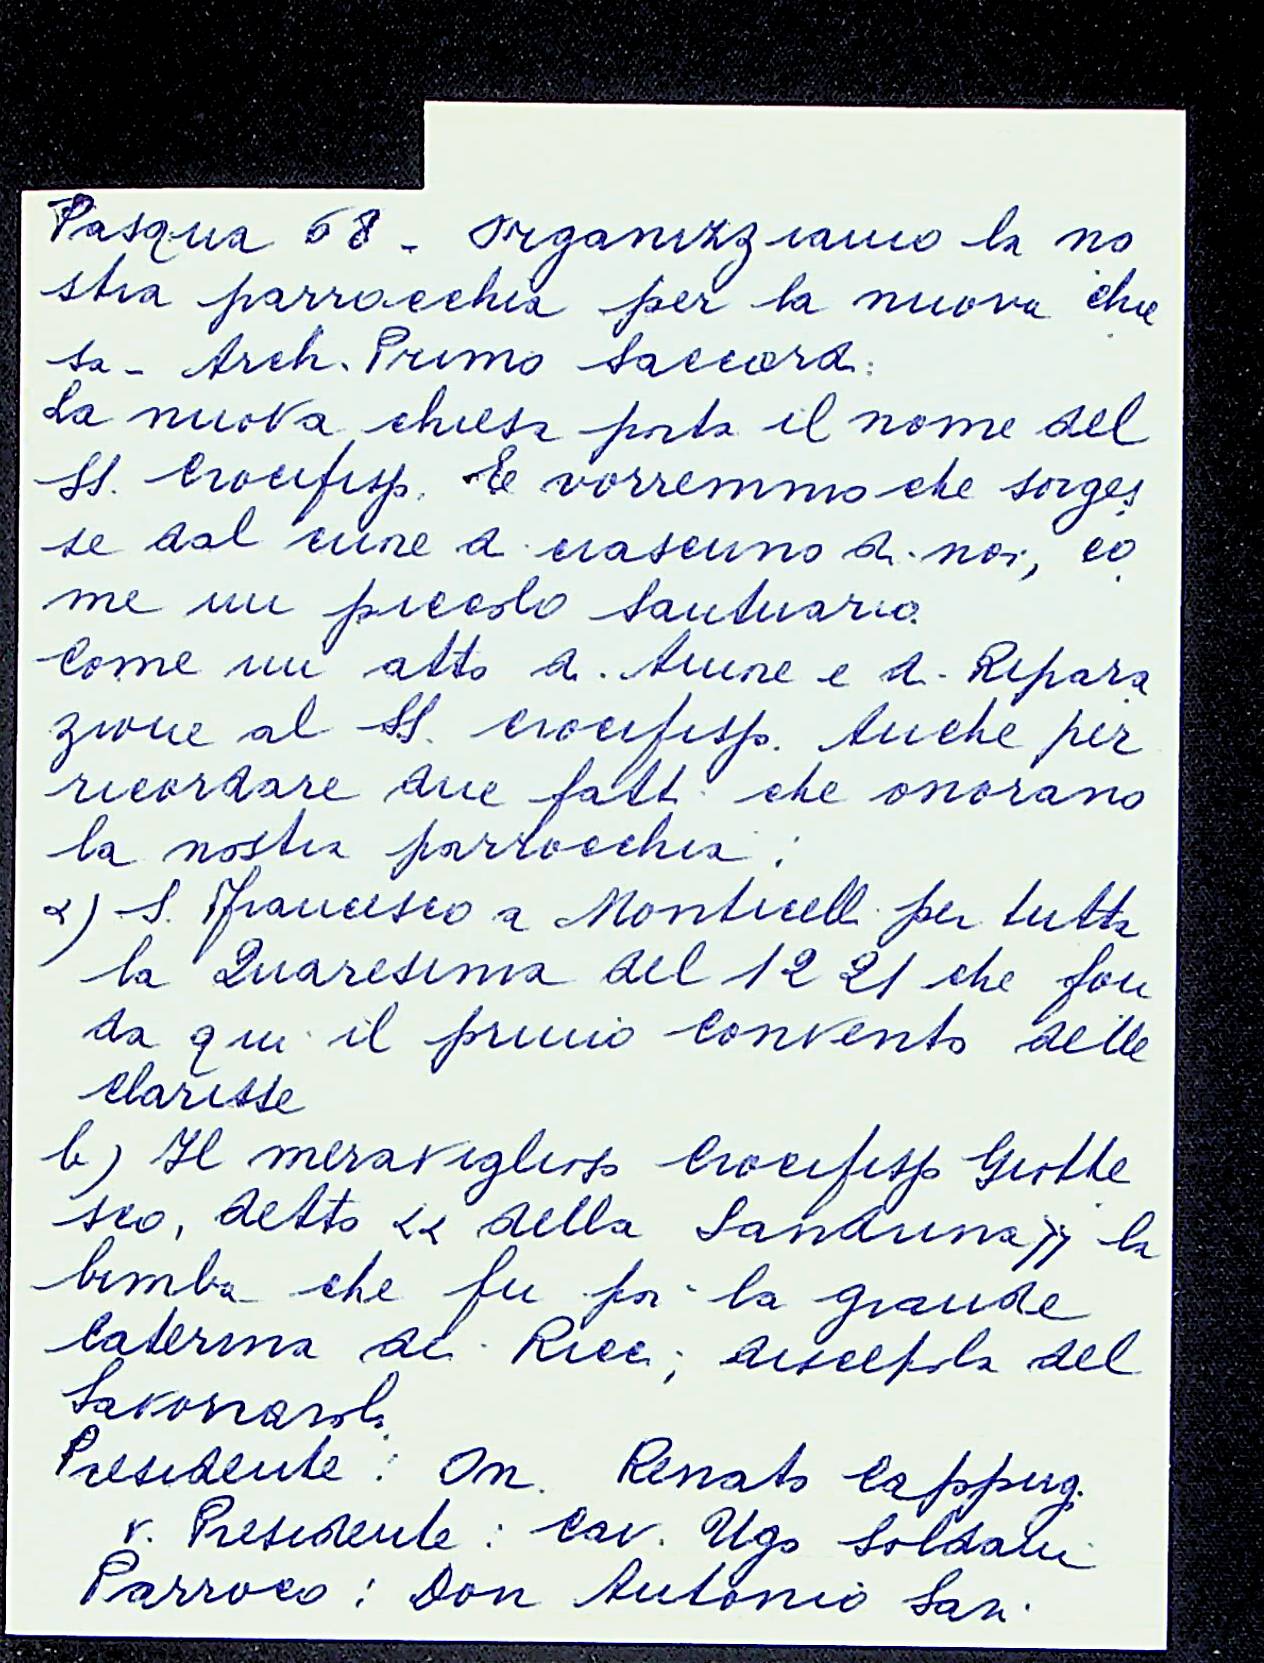 Pasqua 68 - Organizziamo la no
stra parrocchia per la nuova chie
sa - Arch. Primo Saccardi.
La nuova chiesa porta il nome del
SS. Crocifisso. E vorremmo che sorges
se dal cuore di ciascuno di noi, co
me un piccolo Santuario.
Come un atto di Amore e di Ripara
zione al SS. Crocifisso. Anche per
ricordare due fatti che onorano
la nostra parrocchia:
a) S. Francesco a Monticelli per tutta
la Quaresima del 1221 che fon
da qui il primo Convento delle
Clarisse
b) Il meraviglioso Crocifisso Giotte
sco, detto << della Sandrina >> la
bimba che fu poi la grande
Caterina dei Ricci, discepola del
Savonarola.
Presidente: On. Renato Cappugi
v. Presidente: Cav. Ugo Soldani
Parroco: Don Antonio